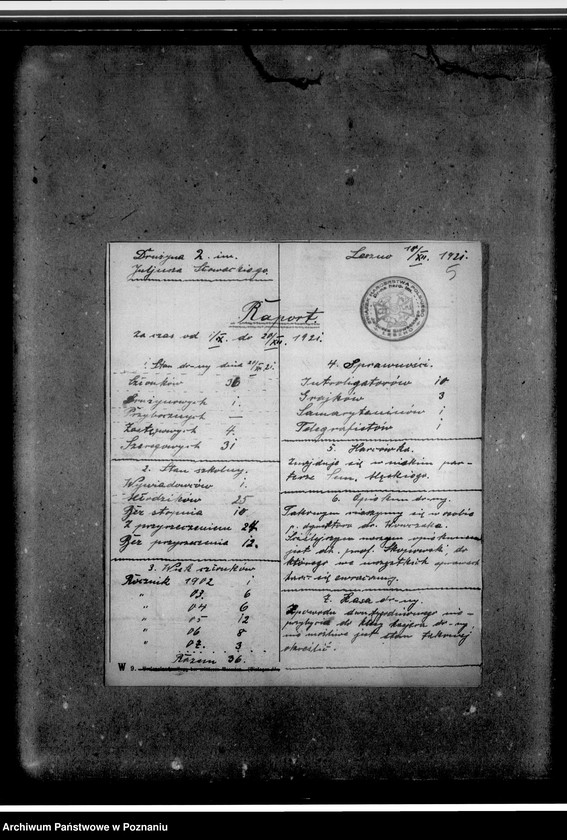 Drużyna 2. im.
Juljusza Słowackiego.
Leszno 18/XII. 1921.
5
Raport.
za czas od 1/IX. do 20/XII. 1921.
1. Stan drużyny dnia 20/XII 21.
Członków 36
Drużynowych 1.
Przybocznych —
Zastępowych 4.
Szeregowych 31
2. Stan szkolny.
Wywiadowców 1.
Młodzików 25
Bez stopnia 10
Z przyrzeczeniem 24
Bez przyrzeczenia 12.
3. Wiek członków
Rocznik 1902 1
" 03. 6
" 04 6
" 05 12
" 06 8
" 07. 3
Razem 36.
W 9.
4. Sprawności.
Introligatorów 10
Grajków 3
Samarytaninów 1
Telegrafistów 1
5. Harcówka.
Znajduje się w niskim par-
terze Sem. Męskiego.
6. Opiekun druży.
Takowym cieszymy się w osobie
p. dyrektora dr.
jest dh. prof. do
którego we wszystkich sprawach
się zwracamy.
7. Kasa druży.
Z powodu dwutygodniowego nie-
przybycia do klasy kasjera druży.
nie możliwe jest stan takowej
określić.
Archiwum Państwowe w Poznaniu